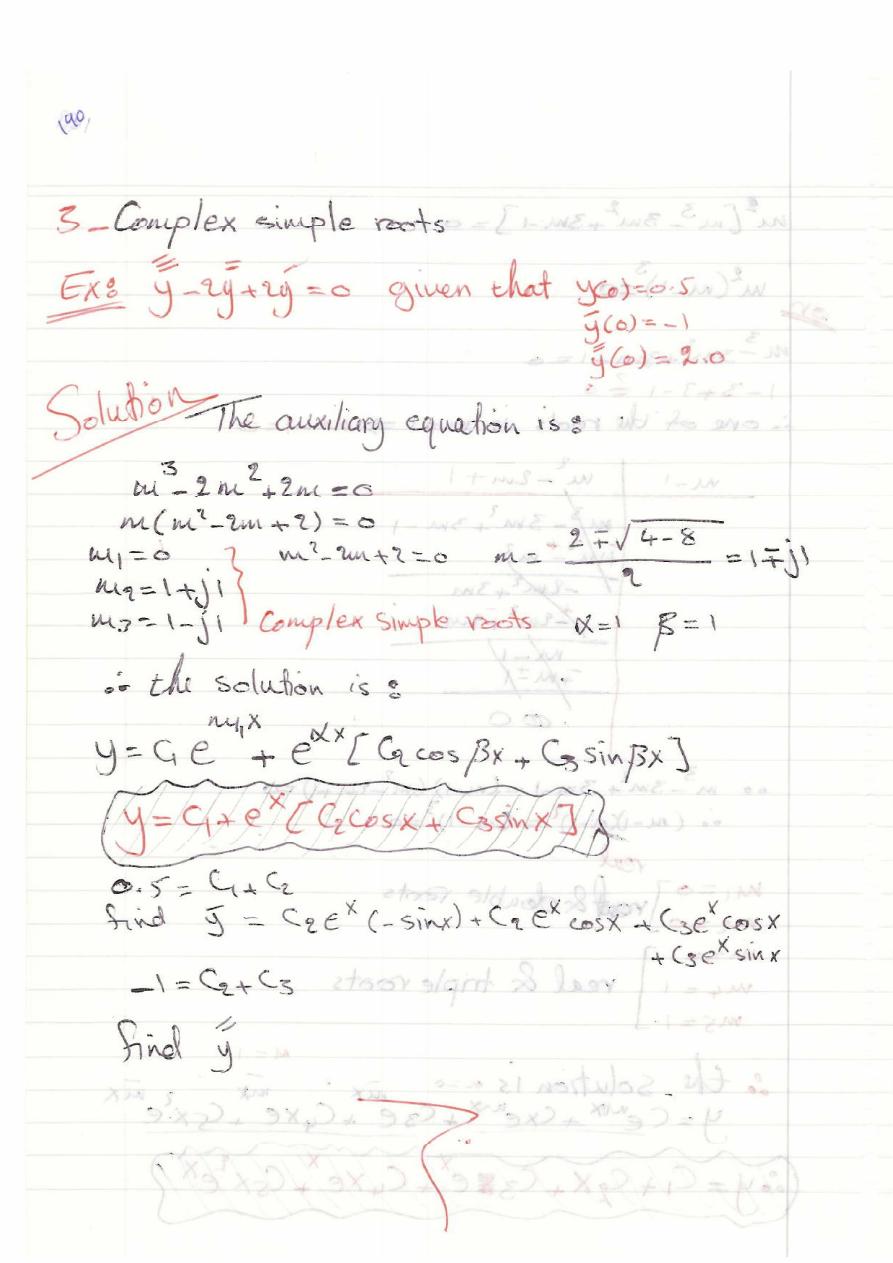 190,
3_Complex simple roots
Ex: y‴ - 2y″ + 2y′ = 0 given that y(0) = 0.5
y′(0) = -1
y″(0) = 2.0
Solution The auxiliary equation is:
m³ - 2m² + 2m = 0
m(m² - 2m + 2) = 0
m₁ = 0 m² - 2m + 2 = 0 m = (2 ∓ √(4-8)) / 2 = 1 ∓ j1
m₂ = 1 + j1
m₃ = 1 - j1 Complex simple roots α = 1 β = 1
∴ the solution is:
y = C₁ e^(m₁x) + e^(αx) [C₂ cos βx + C₃ sin βx]
y = C₁ + e^x [C₂ cos x + C₃ sin x]
0.5 = C₁ + C₂
find y′ = C₂ e^x (-sin x) + C₂ e^x cos x + C₃ e^x cos x
+ C₃ e^x sin x
-1 = C₂ + C₃
find y″